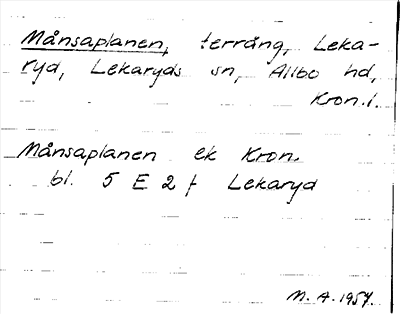 Månsaplanen, terräng, Leka-
ryd, Lekaryds sn, Allbo hd,
Kron.l.
Månsaplanen ek Kron.
bl. 5 E 2 f Lekaryd
M. A. 1957.